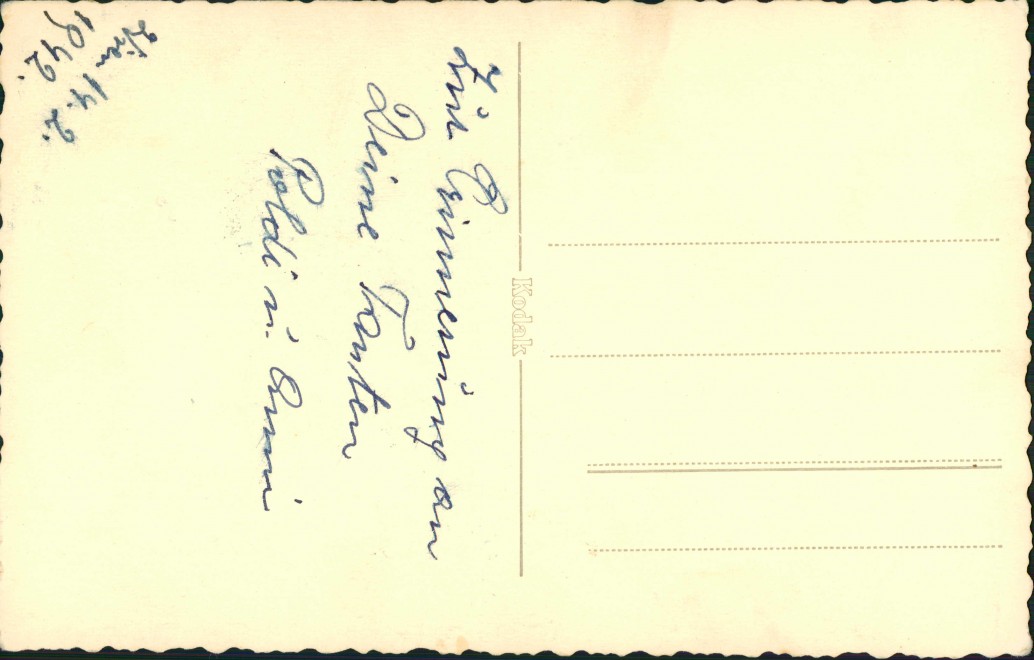 Zur Erinnerung an
Deine Tanten
Poldi u. Anni
Wien 14. 2.
1942.
Kodak